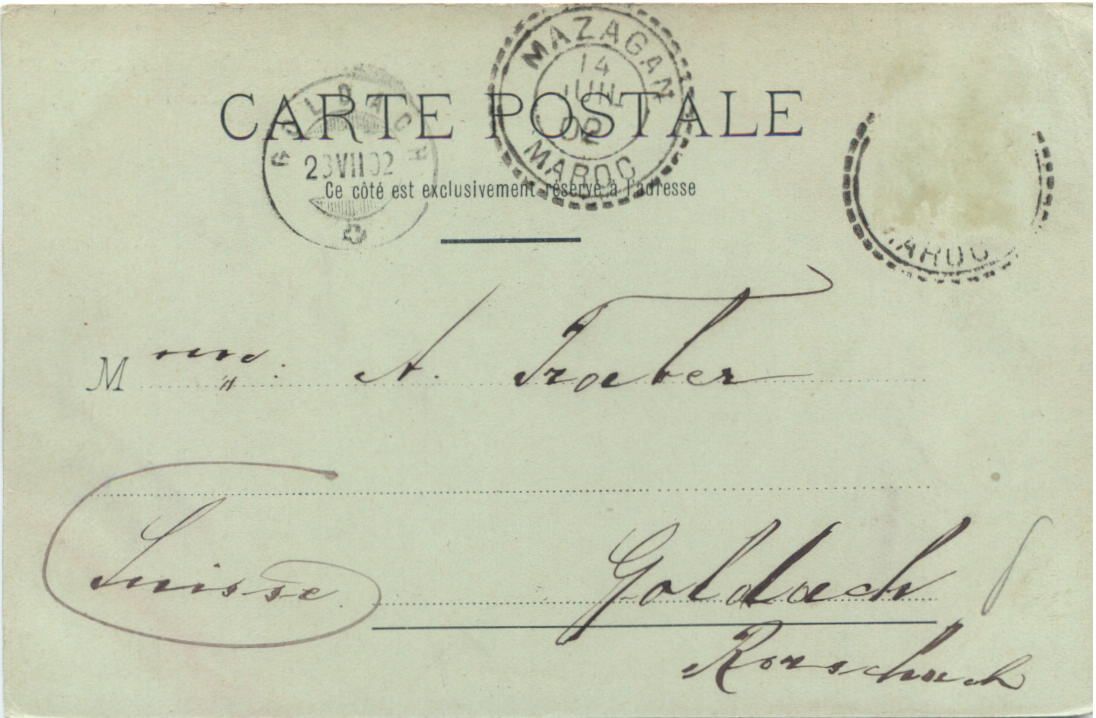 CARTE POSTALE
MAZAGAN
14
JUIL
02
MAROC
GOLDACH
23 VII 02
Ce côté est exclusivement réservé à l'adresse
MAROC
Mme. A. Traber
Suisse
Goldach
Rorschach